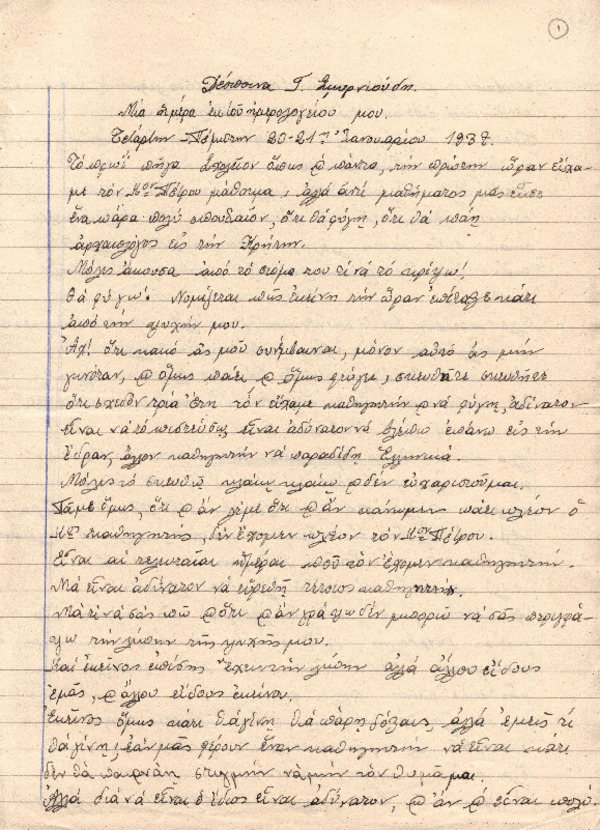 1
Δέσποινα Γ. Σμυρνιούδη.
Μία ημέρα εκ του ημερολογείου μου.
Τετάρτην – Πέμπτην 20-21ην Ιανουαρίου 1937.
Τό πρωί πήγα σχολείον όπως ϗ πάντα, τήν πρώτην ώραν είχα-
με τόν Κον Πέτρου μάθημα, αλλά αντί μαθήματος μας είπε
ένα πάρα πολύ σπουδαίον, ότι θά φύγη, ότι θά πάη
αρχαιολόγος εις τήν Κρήτην.
Μόλις άκουσα από τό στόμα του τί νά τό κρύψω!
θά φύγω! Νομίζεται πώς εκείνη τήν ώραν επέταξε κάτι
από τήν ψυχήν μου.
Αχ! ότι κακό ας μού συνέβαιναι, μόνον αυτό ας μήν
γινόταν, ϗ όμως πάει ϗ όμως φεύγει, σκευθήτε σκευθήτε
ότι σχεδόν τρία έτη τόν είχαμε καθηγητήν ϗ νά φύγη, αδύνατον
είναι νά τό πιστεύσω, είναι αδύνατον νά βλέπω επάνω εις τήν
έδραν, άλλον καθηγητήν νά παραδίδη Ελληνικά.
Μόλις τό σκευθώ κλαίω κλαίω ϗ δεν ευχαριστούμαι.
Πάμε όμως, ότι ϗ άν λέμε ότι ϗ άν κάνωμεν πάει πλέον ο
Κος καθηγητής, δέν έχομεν πλέον τόν Κον Πέτρου.
Είναι αι τελευταίαι ημέραι πού τόν έχομεν καθηγητήν.
Μά είναι αδύνατον νά ευρεθή τέτοιος καθηγητής.
Μά τί νά σάς πώ ϗ ότι ϗ άν γράψω δέν μπορώ νά σάς περιγρά-
ψω τήν λύπην τής ψυχής μου.
Καί εκείνος επίσης έχει τήν λύπην αλλά άλλου είδους
εμάς, ϗ άλλου είδους εκείνον.
Εκείνος όμως κάτι θά γίνη θά πάρη δόξαις, αλλά εμείς τί
θά γίνη, εάν μάς φέρουν έναν καθηγητήν νά είναι κάτι
δέν θά περνάη στιγμήν νά μήν τόν θυμάμαι.
Αλλά διά νά είναι ο ίδιος είναι αδύνατον, ϗ άν ϗ είναι πολύ